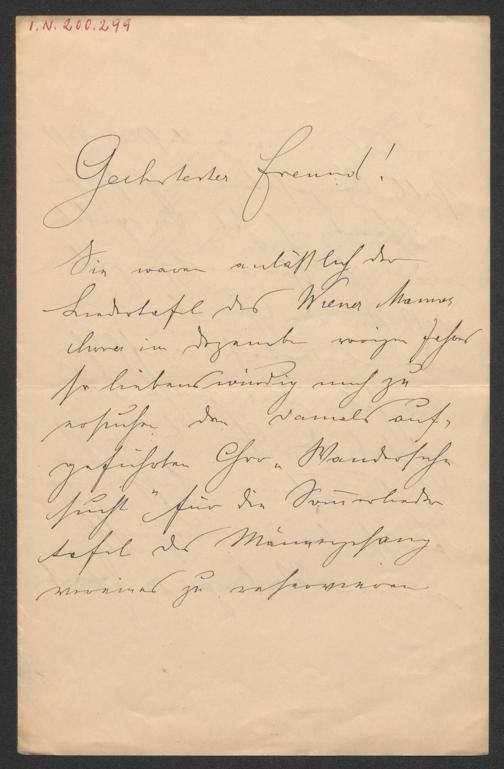 I.N. 200.299
Geehrtester Freund!
Sie waren anläßlich der
Liedertafel des Wiener Männer
chores im Dezember vorigen Jahres
so liebenswürdig mich zu
ersuchen den damals auf-
geführten Chor „Wandersehn
sucht" für die Som̅erlieder
tafel des Männergesang
vereines zu reservieren